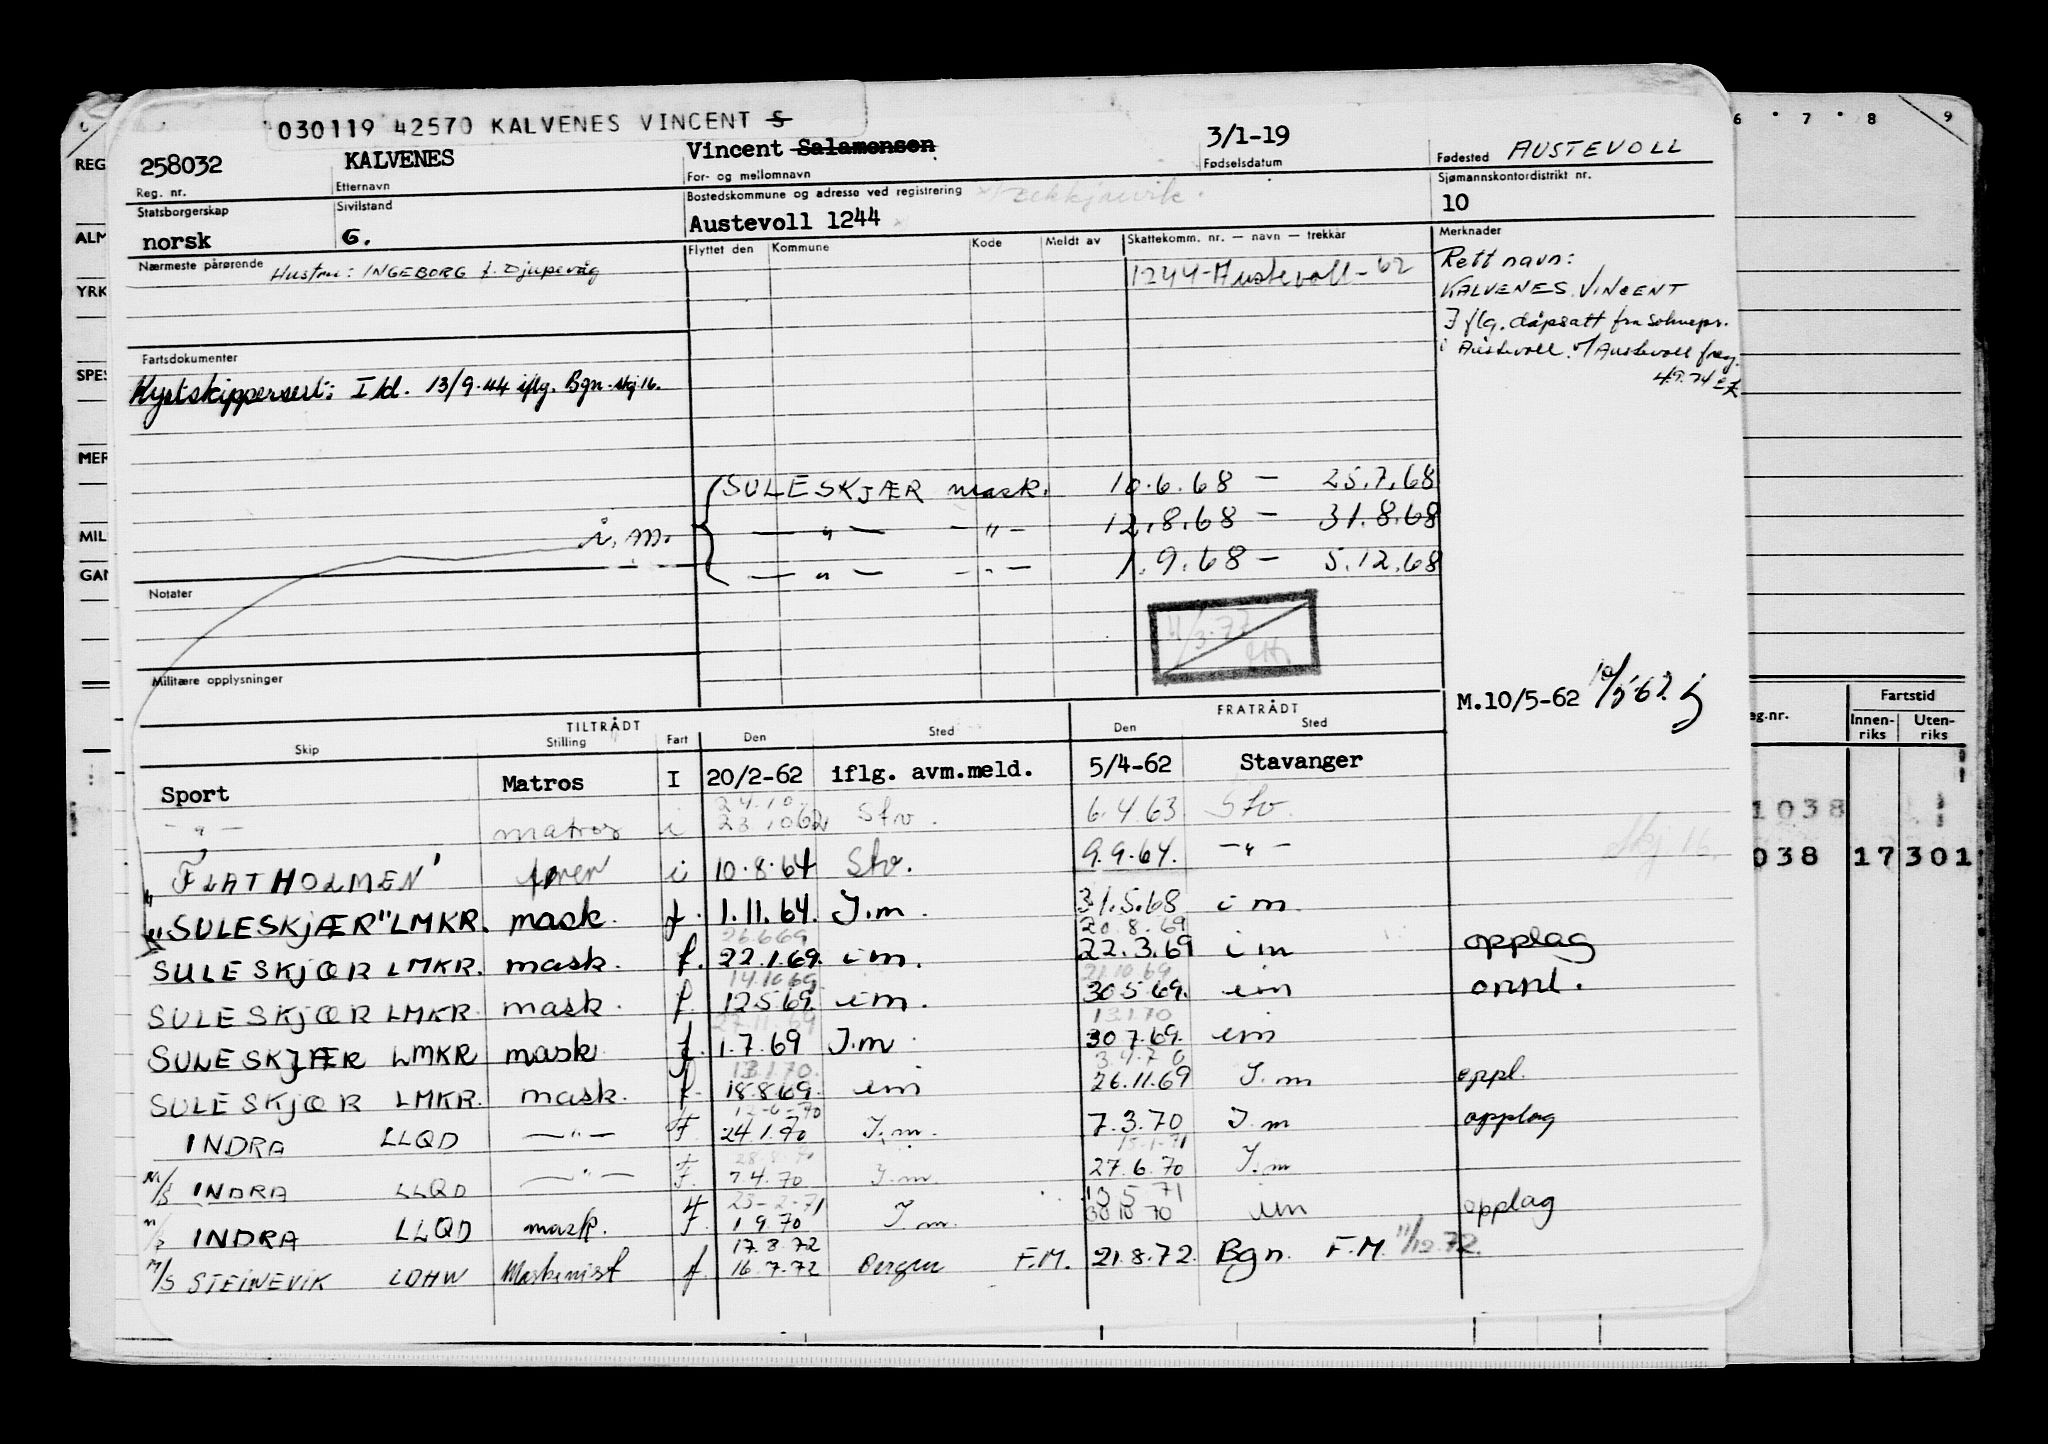 030119 42570 KALVENES VINCENT S
258032 KALVENES Vincent Salamonsen 3/1-19 Fødested AUSTEVOLL
Reg. nr. Etternavn For- og mellomnavn Fødselsdatum Sjømannskontordistrikt nr.
Statsborgerskap Sivilstand Bostedskommune og adresse ved registrering
norsk G. Austevoll 1244 10
Nærmeste pårørende Hustru: INGEBORG f. Djupevåg
Flyttet den Kommune Kode Meldt av Skattekomm. nr. — navn — trekkår
1244-Austevoll-62
Merknader
Rett navn:
KALVENES, VINCENT
I flg. dåpsatt fra Soknepr.
i Austevoll. v/Austevoll
Fartsdokumenter
Kystskippersert: I kl. 13/9-44 iflg. Bgn. skj. 16.
SULESKJÆR mask. 10.6.68 — 25.7.68
i. m. — " — — " — 12.8.68 — 31.8.68
— " — — " — 1.9.68 — 5.12.68
Notater
Militære opplysninger
M.10/5-62
TILTRÅDT FRATRÅDT
Skip Stilling Fart Den Sted Den Sted
Sport Matros I 20/2-62 iflg. avm.meld. 5/4-62 Stavanger
24.10
— " — matros i 23.10 62 Stv. 6.4.63 Stv.
"FLATHOLMEN" i 10.8.64 Stv. 9.9.64. — " —
"SULESKJÆR" LMKR. mask. f. 1.11.64. I.m. 31.5.68 i m.
26.6.69 20.8.69
SULESKJÆR LMKR. mask. f. 22.1.69. i m. 22.3.69 i m opplag
14.10.69. 21.10.69
SULESKJÆR LMKR. mask. f. 12.5.69. i m. 30.5.69. i m oppl.
27.11.69 13.1.70
SULESKJÆR LMKR mask f. 1.7.69 I.m. 30.7.69. i m
13.1.70. 3.4.70
SULESKJÆR LMKR. mask. f. 18.8.69. i m 26.11.69 I.m oppl.
12-6-70
INDRA LLQD — " — F. 24.1.70 I.m. 7.3.70 I.m opplag
15-1-71
M/S INDRA LLQD — " — F. 7.4.70 I.m. 27.6.70 I.m
23-2-71 13.5.71
M/S INDRA LLQD mask. F. 1.9.70 I.m. 30.10.70 i m opplag
17.8.72
M/S STEINEVIK LDHW Maskinist f. 16.7.72 Bergen F.M. 21.8.72. Bgn. F.M. 11/12.72.
6 7 8 9
REG
ALM
YRK
SPES
MER
MIL
GAN
Fartstid
Innenriks Utenriks
1038
038 17 301